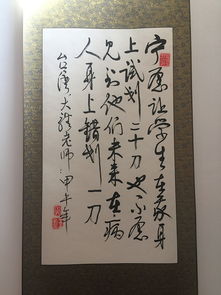 宁愿让学生在我身
上试划二十刀也不愿
见到他们未来在病
人身上错划一刀
台湾大体老师 甲午年